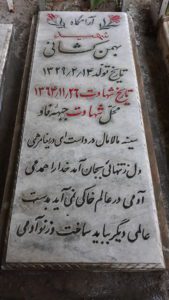 آرامگاه
شهید
بهمن کشانی
تاریخ تولد ۱۳۲۹/۲/۱۳
تاریخ شهادت ۱۳۶۴/۱۱/۲۶
محل شهادت جبهه فاو
سینه مالامال درد است ای دریغا مرهمی
دل ز تنهائی بجان آمد خدا را همدمی
آدمی در عالم خاکی نمی آید بدست
عالمی دیگر بباید ساخت وز نو آدمی